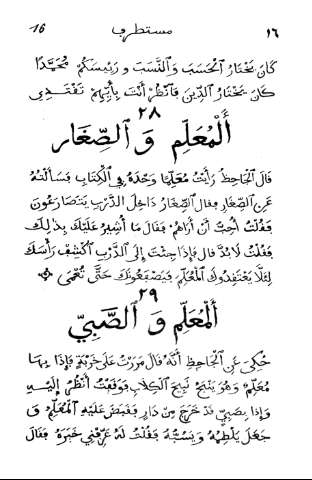 16 مستطرف ١٦
كَانَ يَخْتَارُ الْحَسَبَ وَالنَّسَبَ وَرَئِيسُكُمْ مُحَمَّدًا
كَانَ يَخْتَارُ الدِّينَ فَانْظُرْ أَنْتَ بِأَيِّهِمْ تَقْتَدِي
٢٨
أَلْمُعَلِّم وَ الصِّغَار
قَالَ الْجَاحِظُ رَأَيْتُ مُعَلِّمًا وَحْدَهُ فِي الْكِتَابِ فَسَأَلْتُهُ
عَنِ الصِّغَارِ فقال الصِّغَارُ دَاخِلَ الدَّرْبِ يَتَصَارَعُونَ
فَقُلْتُ أُحِبُّ أَنْ أَرَاهُمْ فَقَالَ مَا أُشِيرُ عَلَيْكَ بِذٰلِكَ
فَقُلْتُ لَا بُدَّ قال فإِذَا جِئْتَ إِلَى الدَّرْبِ اكْشِفْ رَأْسَكَ
لِئَلَّا يَعْتَقِدُوكَ الْمُعَلِّمَ فَيَصْفَعُونَكَ حَتَّى تَعْمَى
٢٩
أَلْمُعَلِّم وَ الصَّبِيّ
حُكِيَ عَنِ الْجَاحِظِ أَنَّهُ قَالَ مَرَرْتُ عَلَى خَرِبَةٍ فَإِذَا بِهَا
مُعَلِّمٌ وَهُوَ يَنْبَحُ نَبِيحَ الْكِلَابِ فَوَقَفْتُ أَنْظُرُ إِلَيْهِ
وَإِذَا بِصَبِيٍّ قَدْ خَرَجَ مِنْ دَارٍ فَقَبَضَ عَلَيْهِ الْمُعَلِّمُ وَ
جَعَلَ يَلْطِمُهُ وَيَسُبُّهُ فَقُلْتُ لَهُ عَرِّفْنِي خَبَرَهُ فَقَالَ